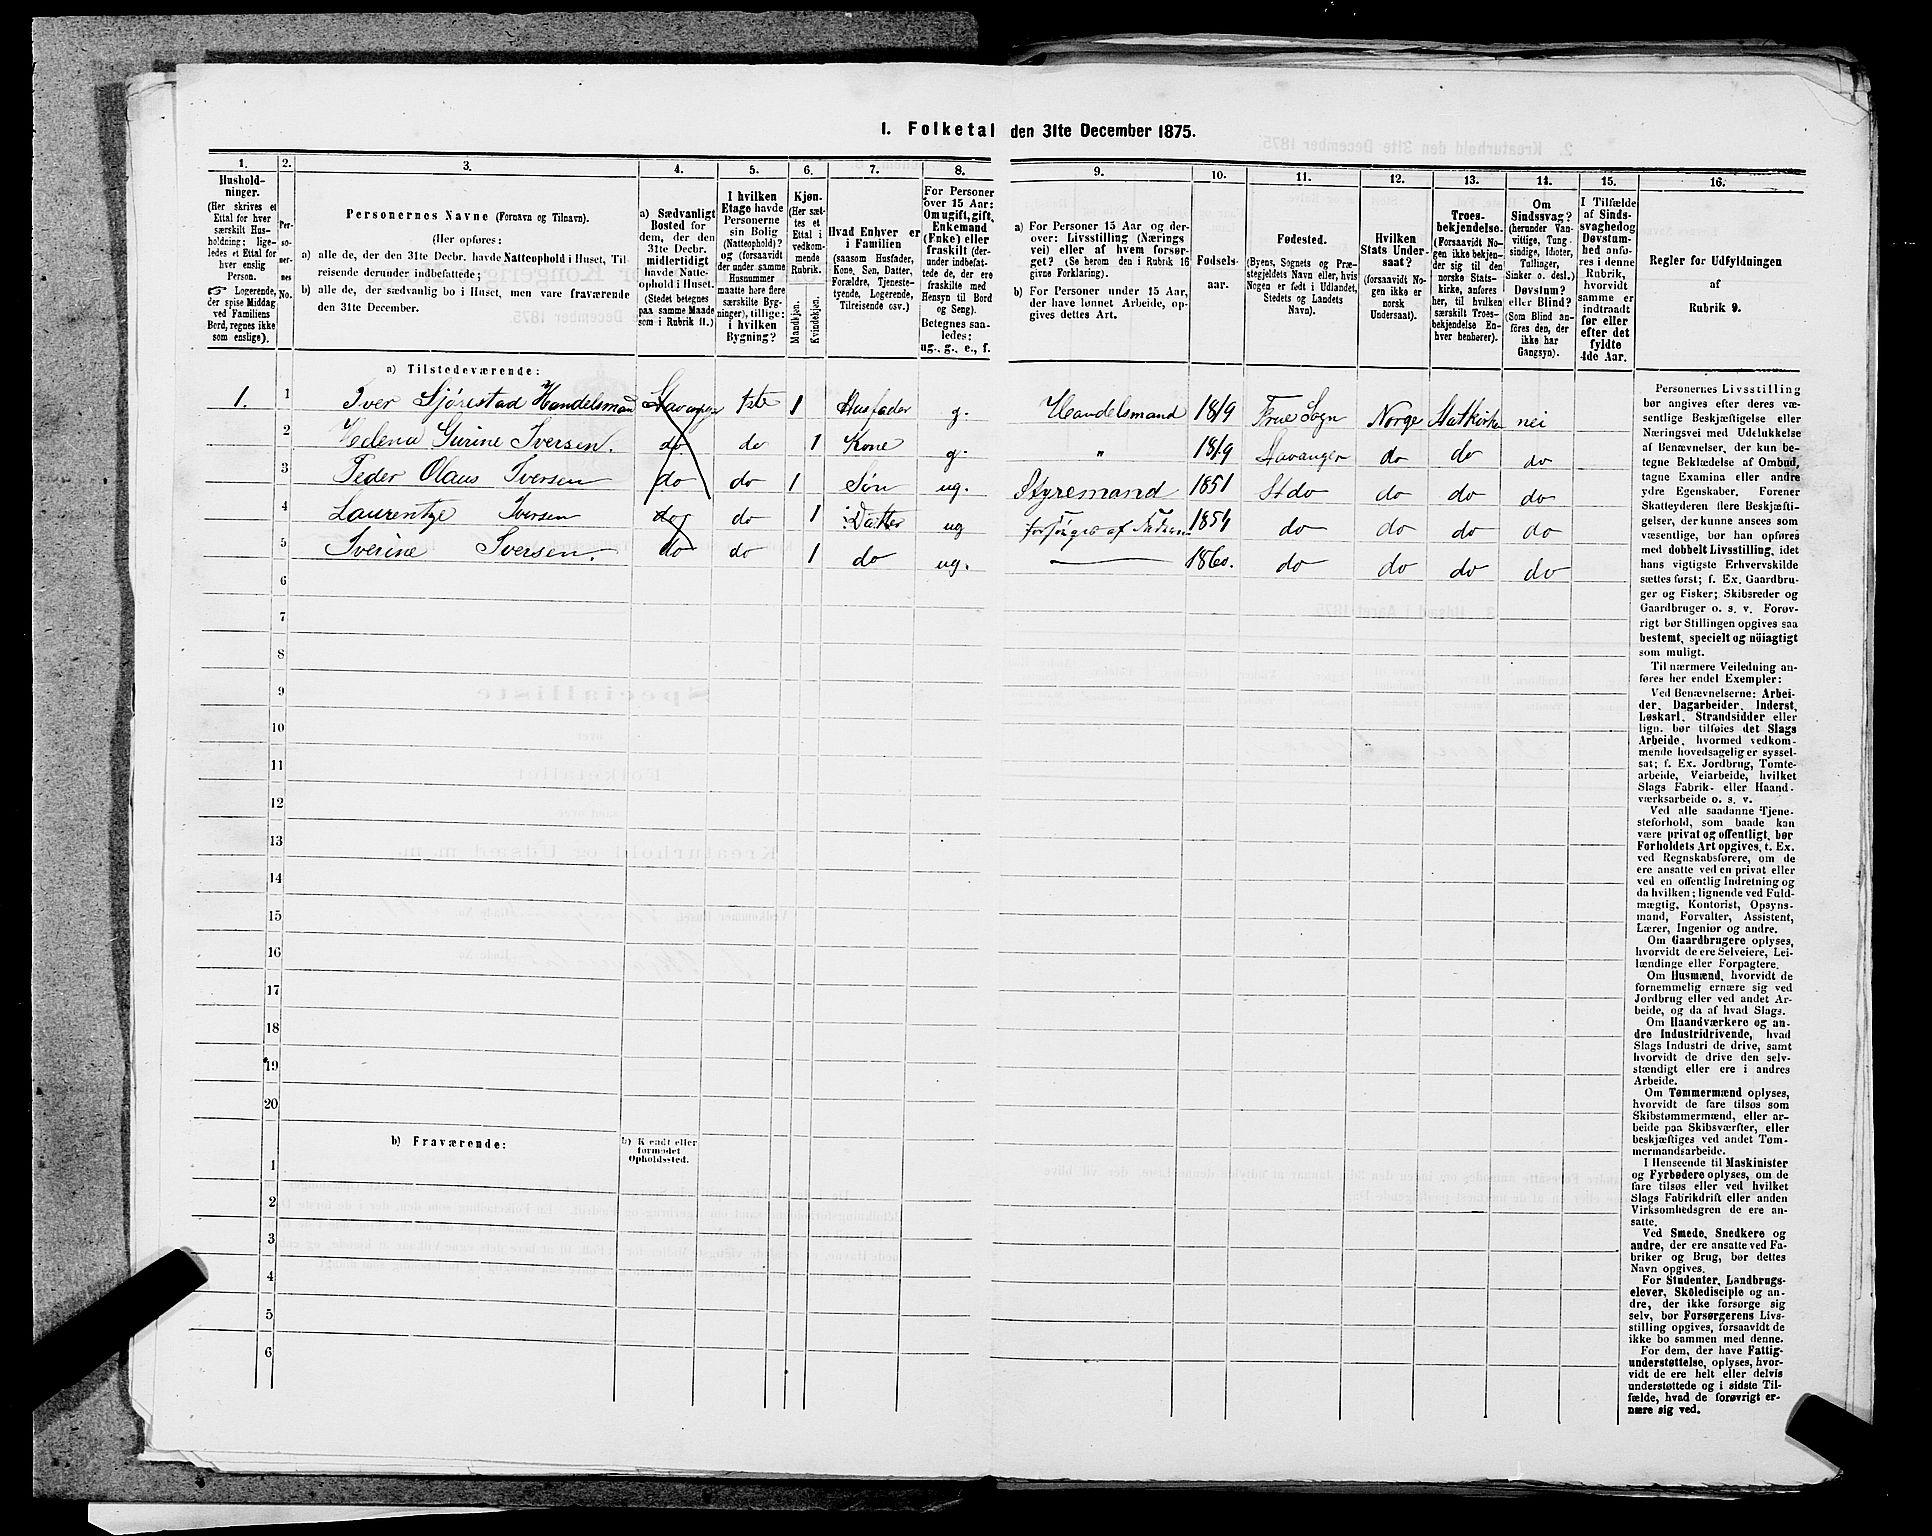 I. Folketal den 31te December 1875.
1. 2. 3. 4. 5. 6. 7. 8. 9. 10. 11. 12. 13. 14. 15. 16.
Hushold-
ninger.
(Her skrives et
Ettal for hver
særskilt Hus-
holdning; lige-
ledes et Ettal for
hver enslig
Person.
☞ Logerende,
der spise Middag
ved Familiens
Bord, regnes ikke
som enslige).
Per-
so-
ner-
nes
No.
Personernes Navne (Fornavn og Tilnavn).
(Her opføres:
a) alle de, der den 31te Decbr. havde Natteophold i Huset, Til-
reisende derunder indbefattede;
b) alle de, der sædvanlig bo i Huset, men vare fraværende
den 31te December.
a) Sædvanligt
Bosted for
dem, der den
31te Decbr.
midlertidigt
havde Natte-
ophold i Huset.
(Stedet betegnes
paa samme Maade
som i Rubrik 11.)
I hvilken
Etage havde
Personerne
sin Bolig
(Natteophold)?
og (forsaavidt
der under samme
Husnummer
maatte høre flere
særskilte Byg-
ninger), tillige:
i hvilken
Bygning?
Kjøn.
(Her sæt-
tes et
Ettal i
vedkom-
mende
Rubrik.
Mandkjøn.
Kvindekjøn.
Hvad Enhver er
i Familien
(saasom Husfader,
Kone, Søn, Datter,
Forældre, Tjeneste-
tyende, Logerende,
Tilreisende osv.)
For Personer
over 15 Aar:
Om ugift, gift,
Enkemand
(Enke) eller
fraskilt (der-
under indbefat-
tede de, der ere
fraskilte med
Hensyn til Bord
og Seng).
Betegnes saa-
ledes:
ug., g., e., f.
a) For Personer 15 Aar og der-
over: Livsstilling (Nærings
vei) eller af hvem forsør-
get? (Se herom den i Rubrik 16
givne Forklaring).
b) For Personer under 15 Aar,
der have lønnet Arbeide, op-
gives dettes Art.
Fødsels-
aar.
Fødested.
(Byens, Sognets og Præ-
stegjeldets Navn eller, hvis
Nogen er født i Udlandet,
Stedets og Landets
Navn).
Hvilken
Stats Under-
saat?
(forsaavidt No-
gen ikke er
norsk
Undersaat).
Troes-
bekjendelse.
(Forsaavidt No-
gen ikke bekjen-
der sig til den
norske Stats-
kirke, anføres
her, til hvilken
særskilt Troes-
bekjendelse En-
hver henhører).
Om
Sindssvag?
(herunder Van-
vittige, Tung-
sindige, Idioter,
Tullinger,
Sinker o. desl.)
Døvstum?
eller Blind?
(Som Blind an-
føres den, der
ikke har
Gangsyn).
I Tilfælde
af Sinds-
svaghed og
Døvstum-
hed anfø-
res i denne
Rubrik,
hvorvidt
samme er
indtraadt
før eller
efter det
fyldte
4de Aar.
Regler for Udfyldningen
af
Rubrik 9.
a) Tilstedeværende:
1. 1 Iver Sjørestad Handelsmand Stavanger 1ste 1 Husfader g. Handelsmand 1819 Frue Sogn Norge Statkirken nei
2 Helena Gurine Iversen. do do 1 Kone g. " 1819 Stavanger do do do
3 Peder Olaus Iversen do do 1 Søn ug. Styremand 1851 St do do do do
4 Laurentze Iversen do do 1 Datter ug forsørges af Faderen 1854 do do do do
5 Iverine Iversen. do do 1 do ug. 1860. do do do do
6
7
8
9
10
11
12
13
14
15
16
17
18
19
20
b) Fraværende:
b) Kjendt eller
formodet
Opholdssted.
1
2
3
4
5
6
Personernes Livsstilling
bør angives efter deres væ-
sentlige Beskjæftigelse eller
Næringsvei med Udelukkelse
af Benævnelser, der kun be-
tegne Beklædelse af Ombud,
tagne Examina eller andre
ydre Egenskaber. Forener
Skatteyderen flere Beskjæfti-
gelser, der kunne ansees som
væsentlige, bør han opføres
med dobbelt Livsstilling, idet
hans vigtigste Erhvervskilde
sættes først; f. Ex. Gaardbru-
ger og Fisker; Skibsreder og
Gaardbruger o. s. v. Forøv-
rigt bør Stillingen opgives saa
bestemt, specielt og nöiagtigt
som muligt.
Til nærmere Veiledning an-
føres her endel Exempler:
Ved Benævnelserne: Arbei-
der, Dagarbeider, Inderst,
Løskarl, Strandsidder eller
lign. bør tilføies det Slags
Arbeide, hvormed vedkom-
mende hovedsagelig er syssel-
sat; f. Ex. Jordbrug, Tomte-
arbeide, Veiarbeide, hvilket
Slags Fabrik- eller Haand-
værksarbeide o. s. v.
Ved alle saadanne Tjene-
steforhold, som baade kan
være privat og offentligt, bør
Forholdets Art opgives, t. Ex.
ved Regnskabsførere, om de
ere ansatte ved en privat eller
ved en offentlig Indretning og
da hvilken; lignende ved Fuld-
mægtig, Kontorist, Opsyns-
mand, Forvalter, Assistent,
Lærer, Ingeniør og andre.
Om Gaardbrugere oplyses,
hvorvidt de ere Selveiere, Lei-
lændinge eller Forpagtere.
Om Husmænd, hvorvidt de
fornemmelig ernære sig ved
Jordbrug eller ved andet Ar-
beide, og da af hvad Slags.
Om Haandværkere og an-
dre Industridrivende, hvad
Slags Industri de drive, samt
hvorvidt de drive den selv-
stændigt eller ere i andres
Arbeide.
Om Tømmermænd oplyses,
hvorvidt de fare tilsøs som
Skibstømmermænd, eller ar-
beide paa Skibsværfter, eller
beskjæftiges ved andet Tøm-
mermandsarbeide.
I Henseende til Maskinister
og Fyrbødere oplyses, om de
fare tilsøs eller ved hvilket
Slags Fabrikdrift eller anden
Virksomhedsgren de ere an-
satte.
Ved Smede, Snedkere og
andre, der ere ansatte ved Fa-
briker og Brug, bør dettes
Navn opgives.
For Studenter, Landbrugs-
elever, Skoledisciple og an-
dre, der ikke forsørge sig
selv, bør Forsørgerens Livs-
stilling opgives, forsaavidt de
ikke bo sammen med denne.
For dem, der have Fattig-
understøttelse, oplyses, hvor-
vidt de ere helt eller delvis
understøttede og i sidste Til-
fælde, hvad de forøvrigt er-
nære sig ved.